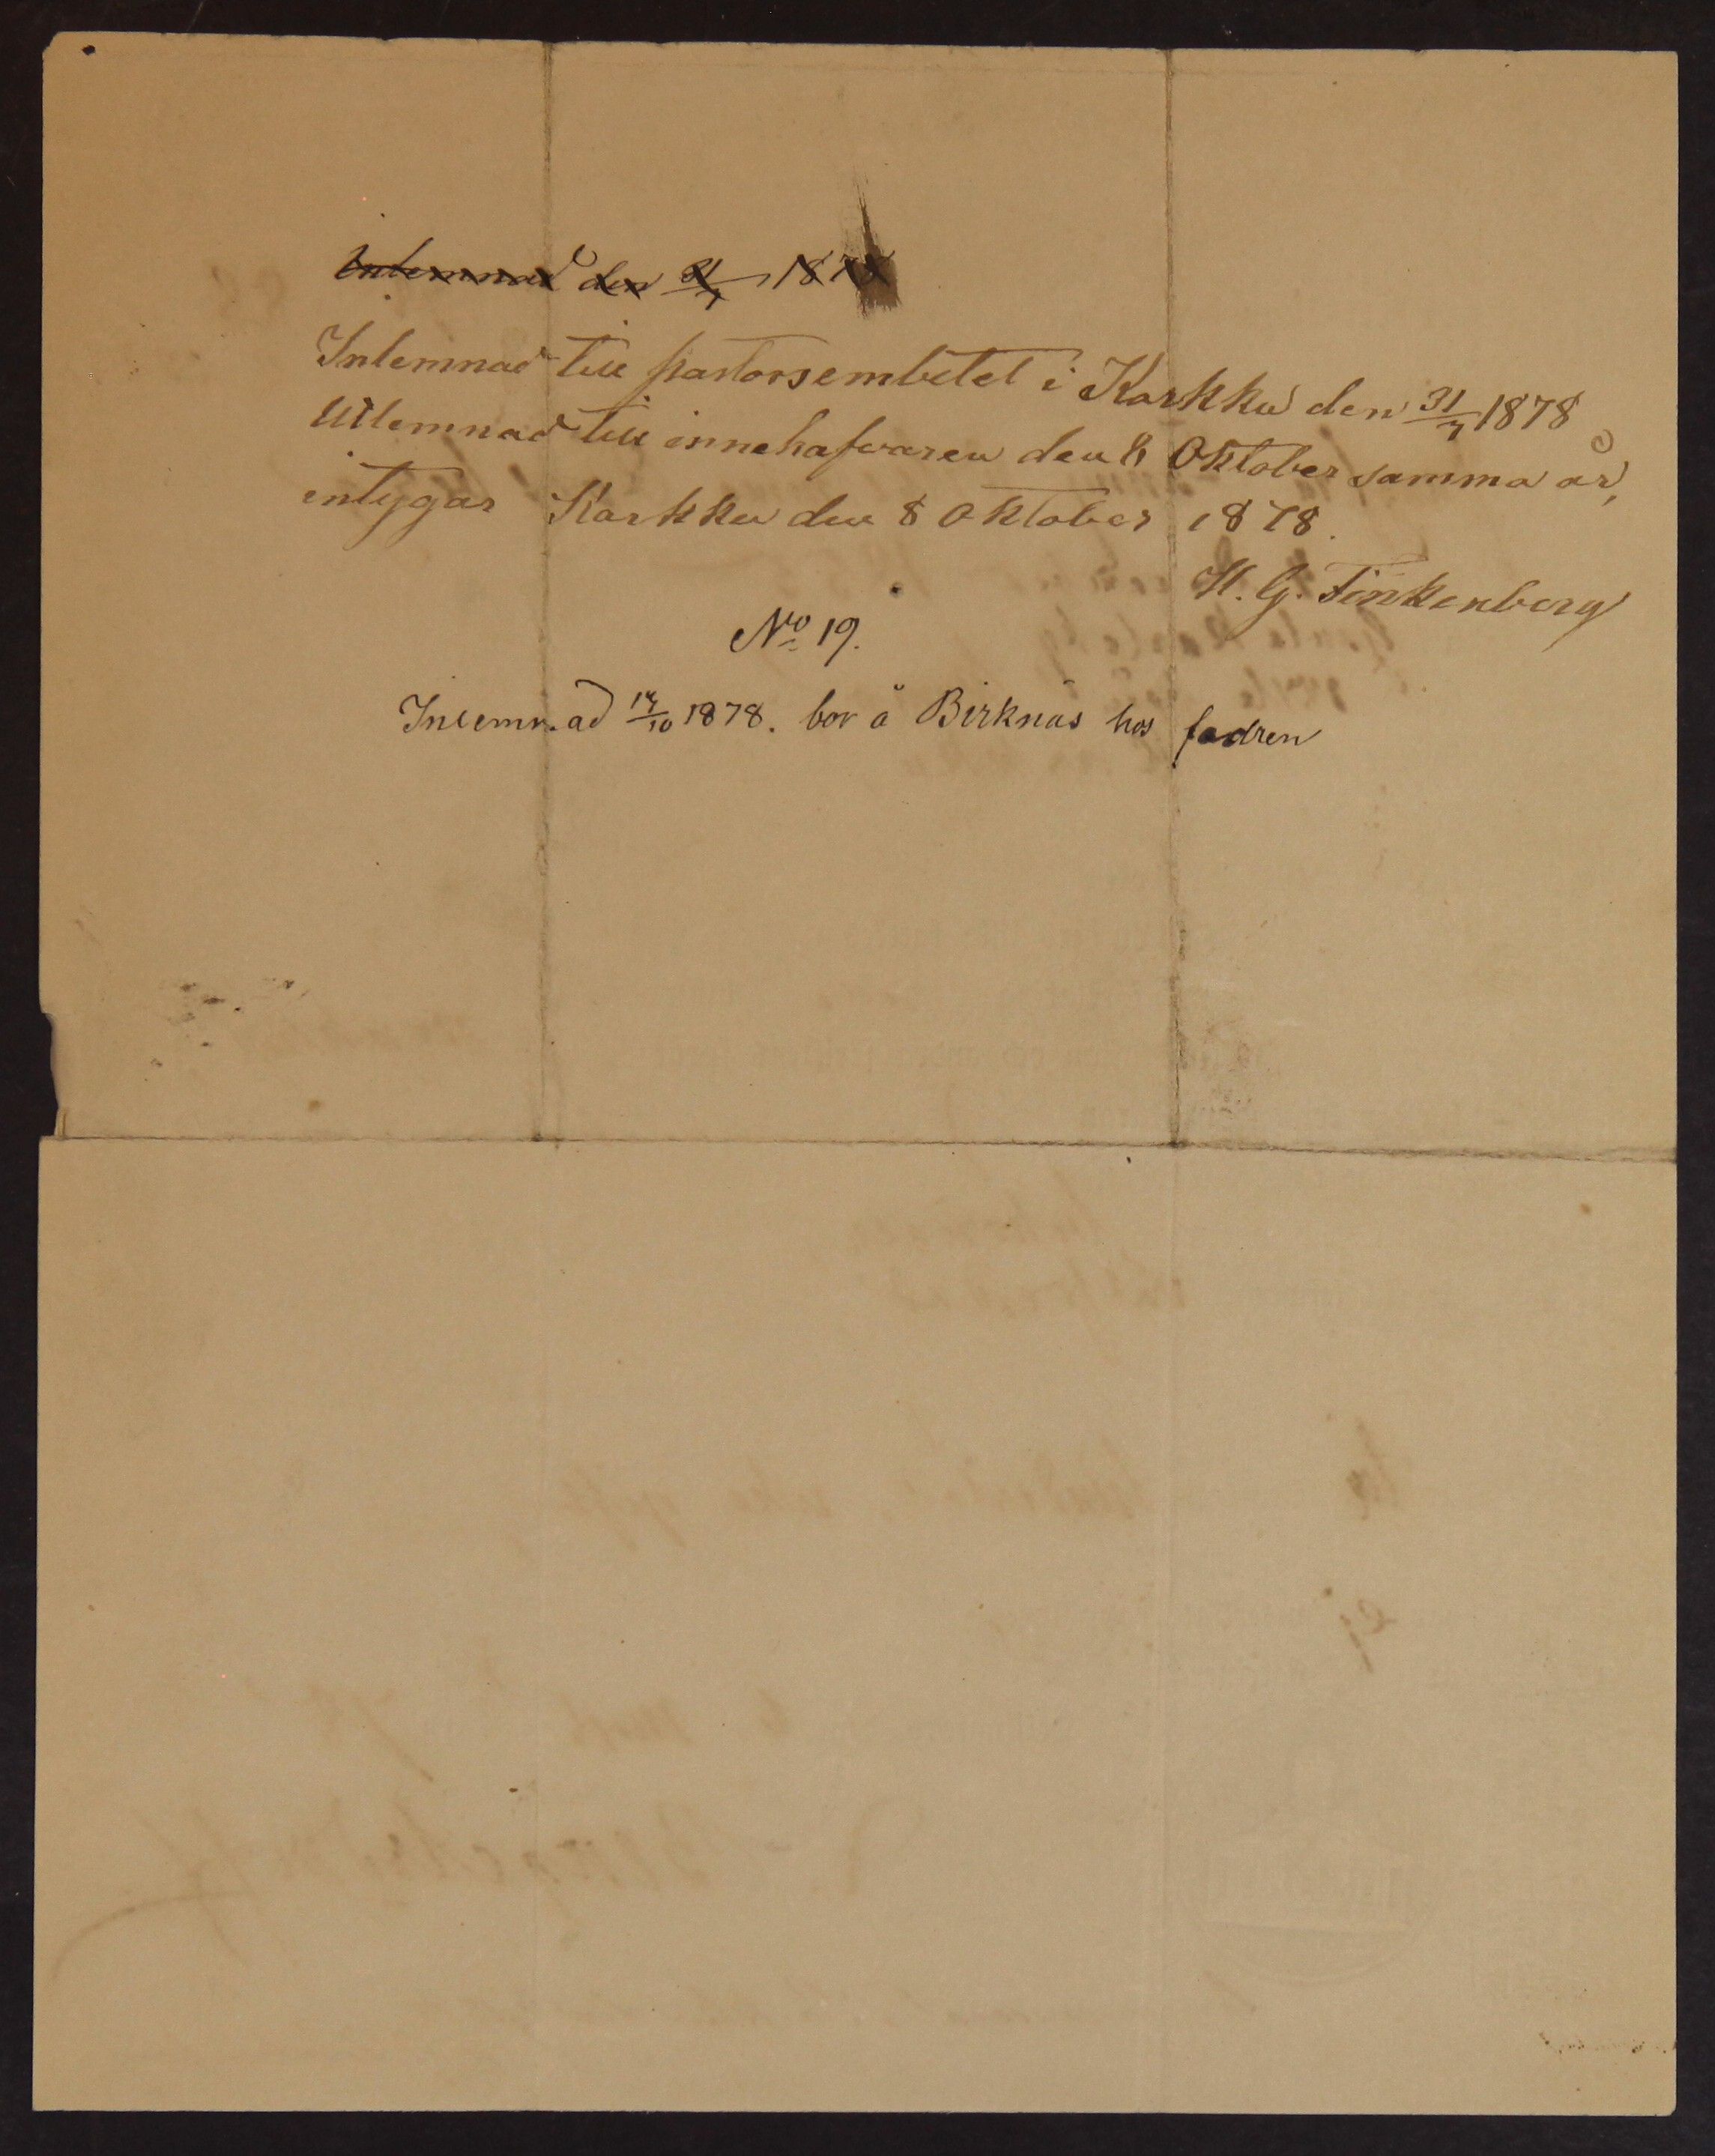 Inlemnad den 31/7 1878
Inlemnad till pastorsembetet i Karkku den 31/7 1878
Utlemnad till innehafvaren den 8 Oktober samma år,
intygar Karkku den 8 Oktober 1878.
H. G. Finkenberg
No 19.
Inlemnad 14/10 1878. bor å Birknäs hos fadren